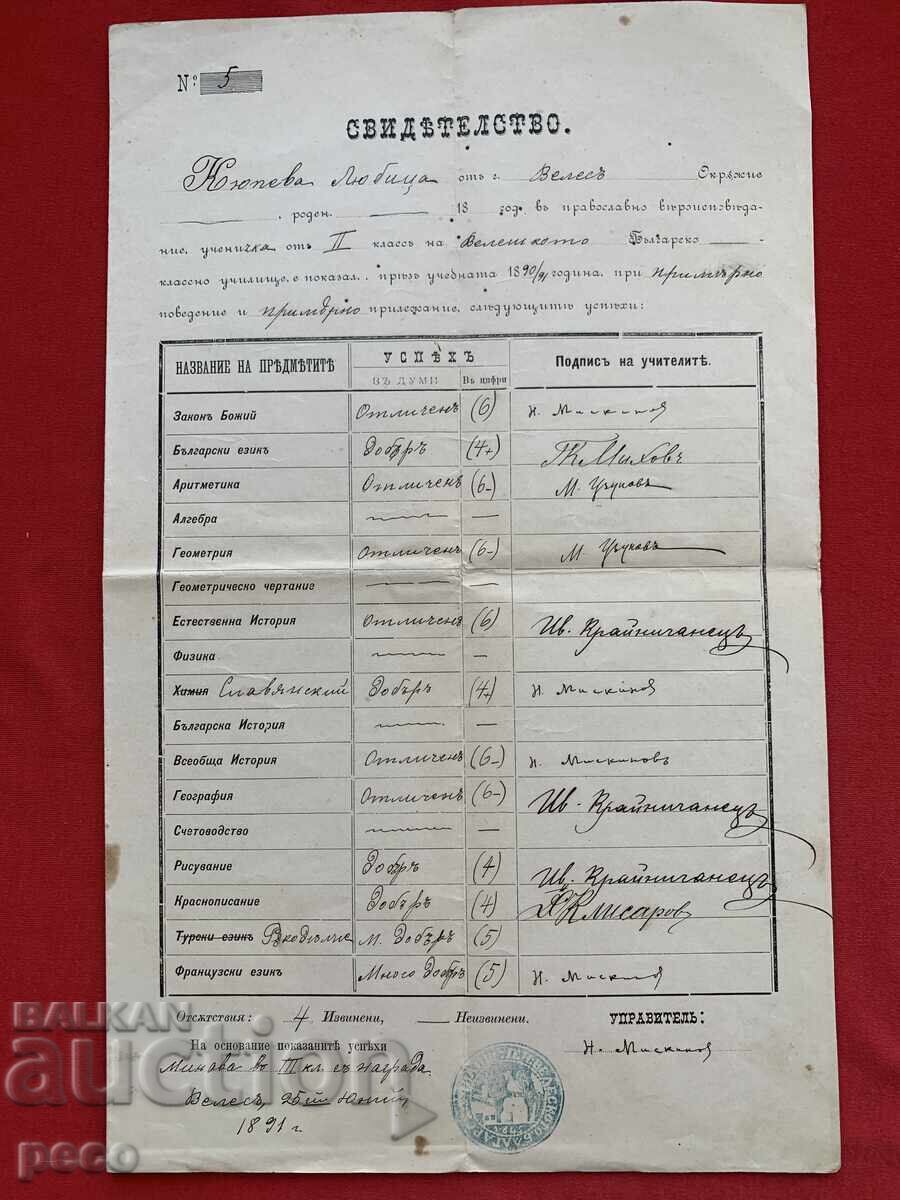 № 5
СВИДѢТЕЛСТВО.
Кюпева Любица отъ г. Велесъ Окрѫжие
, роден. 18 год въ православно вѣроисповѣда-
ние, ученичка отъ II классъ на Велешкото Българско
классно училище, е показал.. прѣзъ учебната 1890/91 година, при примѣрно
поведение и примѣрно прилежание, слѣдующитѣ успѣхи:
НАЗВАНИЕ НА ПРѢДМѢТИТѢ УСПѢХЪ Подписъ на учителитѣ.
ВЪ ДУМИ Въ цифри
Законъ Божий Отличенъ (6) Н. Мискинов
Български езикъ Добъръ (4+) ГК Миховъ
Аритметика Отличенъ (6-) М. Узуновъ
Алгебра —
Геометрия Отличенъ (6-) М. Узуновъ
Геометрическо чертание —
Естественна История Отличенъ (6) Ив. Крайничанецъ
Физика —
Химия Славянский Добъръ (4+) Н. Мискинов
Българска История —
Всеобща История Отличенъ (6-) Н. Мискиновъ
География Отличенъ (6-) Ив. Крайничанецъ
Счетоводство —
Рисувание Добъръ (4) Ив. Крайничанецъ
Краснописание Добъръ (4) Клисаров
Турски езикъ Рѫкодѣлие М. Добъръ (5)
Французски езикъ Много добъръ (5) Н. Мискинов
Отсѫтствия: 4 Извинени, — Неизвинени. УПРАВИТЕЛЬ:
На основание показанитѣ успѣхи Н. Мискинов
Минова въ III кл. съ награда
Велесъ, 25ий Юний,
1891 г
BALKAN
auction
peco